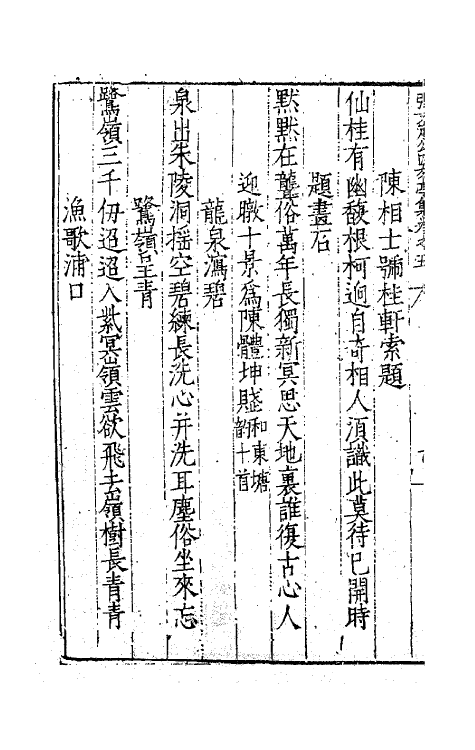 陳相士號桂軒索題
仙桂有幽馥根柯逈自奇相人湏識此莫待已開時
題畫石
默默在聾俗萬年長獨新冥思天地裏誰復古心人
迎暾十景爲陳體坤賦和東塘韻十首
龍泉瀉碧
泉出朱陵洞揺空碧練長洗心并洗耳塵俗坐來忘
鷲嶺呈青
鷲嶺三千仭迢迢入紫冥嶺雲欲飛去嶺樹長青青
漁歌浦口